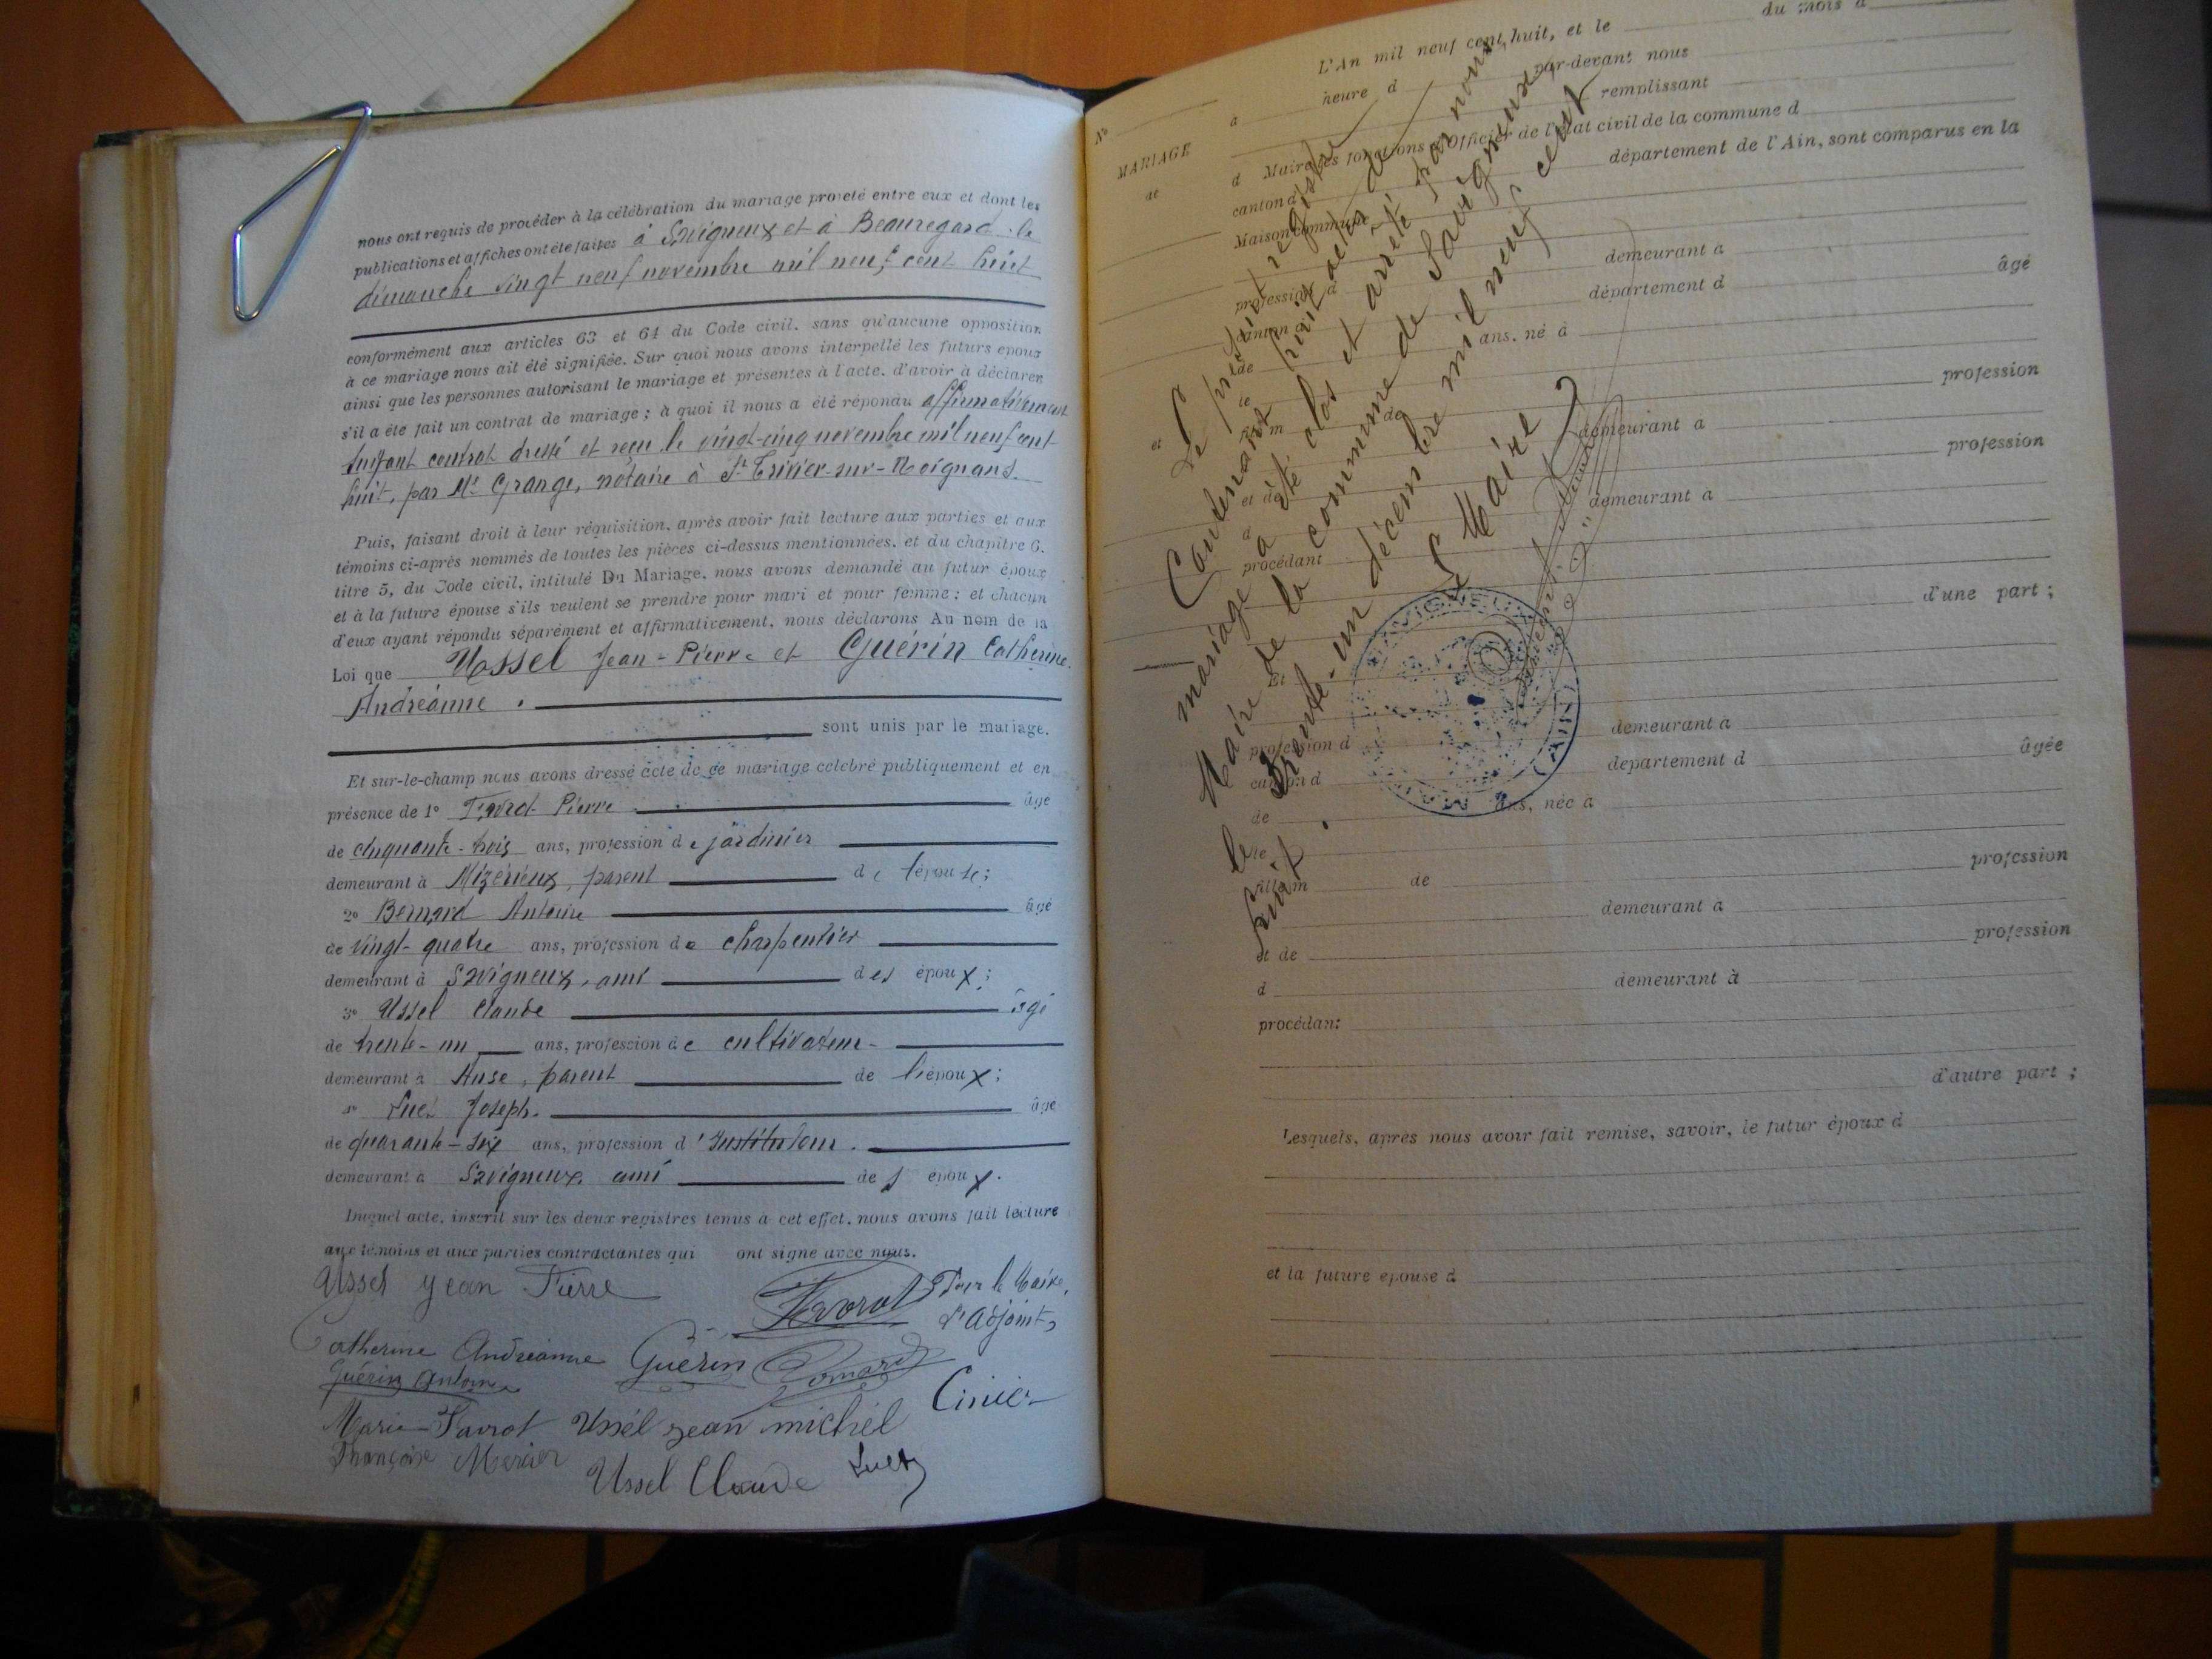 nous ont requis de procéder à la célébration du mariage projeté entre eux et dont les
publications et affiches ont été faites à Savigneux et à Beauregard le
dimanche vingt neuf novembre mil neuf cent huit
conformément aux articles 63 et 64 du Code civil, sans qu'aucune opposition
à ce mariage nous ait été signifiée. Sur quoi nous avons interpellé les futurs époux
ainsi que les personnes autorisant le mariage et présentes à l'acte, d'avoir à déclarer
s'il a été fait un contrat de mariage ; à quoi il nous a été répondu affirmativement
suivant contrat dressé et reçu le vingt-cinq novembre mil neuf cent
huit, par Me Grange, notaire à St Trivier-sur-Moignans.
Puis, faisant droit à leur réquisition, après avoir fait lecture aux parties et aux
témoins ci-après nommés de toutes les pièces ci-dessus mentionnées, et du chapitre 6,
titre 5, du Code civil, intitulé Du Mariage, nous avons demandé au futur époux
et à la future épouse s'ils veulent se prendre pour mari et pour femme ; et chacun
d'eux ayant répondu séparément et affirmativement, nous déclarons Au nom de la
Loi que Ussel Jean-Pierre et Guérin Catherine
Andréanne.
sont unis par le mariage.
Et sur-le-champ nous avons dressé acte de ce mariage célébré publiquement et en
présence de 1° Favrot Pierre âgé
de cinquante-trois ans, profession de jardinier
demeurant à Mizérieux, parent de l'épouse;
2° Bernard Antoine âgé
de vingt-quatre ans, profession de charpentier
demeurant à Savigneux, ami des époux;
3° Ussel Claude âgé
de trente-un ans, profession de cultivateur
demeurant à Anse, parent de l'époux;
4° Luez Joseph. âgé
de quarante-six ans, profession d'instituteur.
demeurant à Savigneux ami des époux.
Duquel acte, inscrit sur les deux registres tenus à cet effet, nous avons fait lecture
aux témoins et aux parties contractantes qui ont signé avec nous.
Ussel Jean Pierre
Favrot
Pour le Maire,
L'adjoint,
Catherine Andréanne Guérin
Guérin Antoine
Marie Favrot Ussel Jean michel
Cinier
Françoise Mercier
Ussel Claude Luez
L'An mil neuf cent huit, et le du mois d
N° à heure d par-devant nous
MARIAGE d Maire remplissant
de les fonctions d'Officier de l'état civil de la commune d
canton d département de l'Ain, sont comparus en la
Maison commune
profession d demeurant à
canton d département d âgé
de ans, né à
le
et fils m de profession
demeurant à
et de profession
d demeurant à
procédant
d'une part ;
Et
profession d demeurant à
canton d département d âgée
de ans, née à
le
fille m de profession
demeurant à
et de profession
d demeurant à
procédant
d'autre part ;
Lesquels, après nous avoir fait remise, savoir, le futur époux d
et la future épouse d
Le présent registre
Contenant huit actes de
mariage a été clos et arrêté par nous,
Maire de la commune de Savigneux
le trente-un décembre mil neuf cent
huit.
Le Maire
SAVIGNEUX
(AIN)